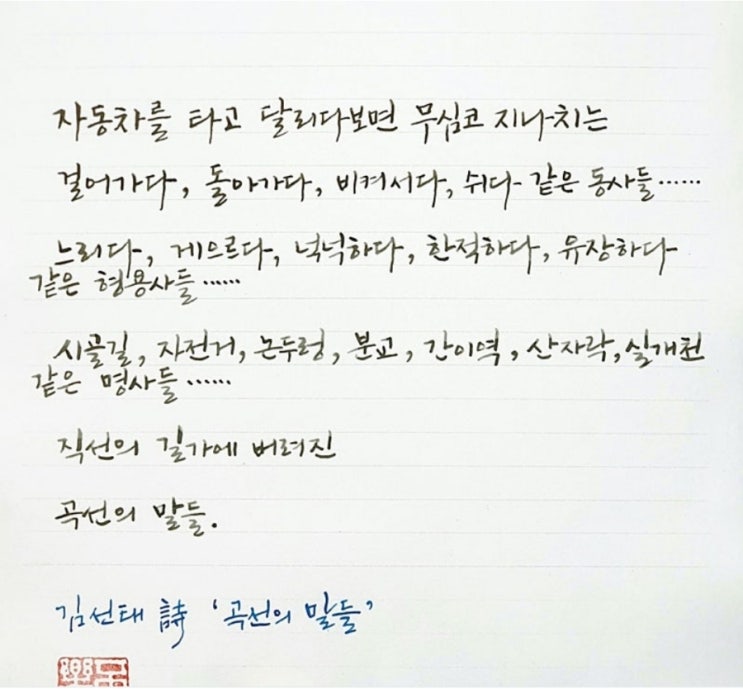 자동차를 타고 달리다보면 무심코 지나치는
걸어가다, 돌아가다, 비켜서다, 쉬다 같은 동사들……
느리다, 게으르다, 넉넉하다, 한적하다, 유장하다
같은 형용사들……
시골길, 자전거, 논두렁, 분교, 간이역, 산자락, 실개천
같은 명사들……
직선의 길가에 버려진
곡선의 말들.
김선태 詩 '곡선의 말들'